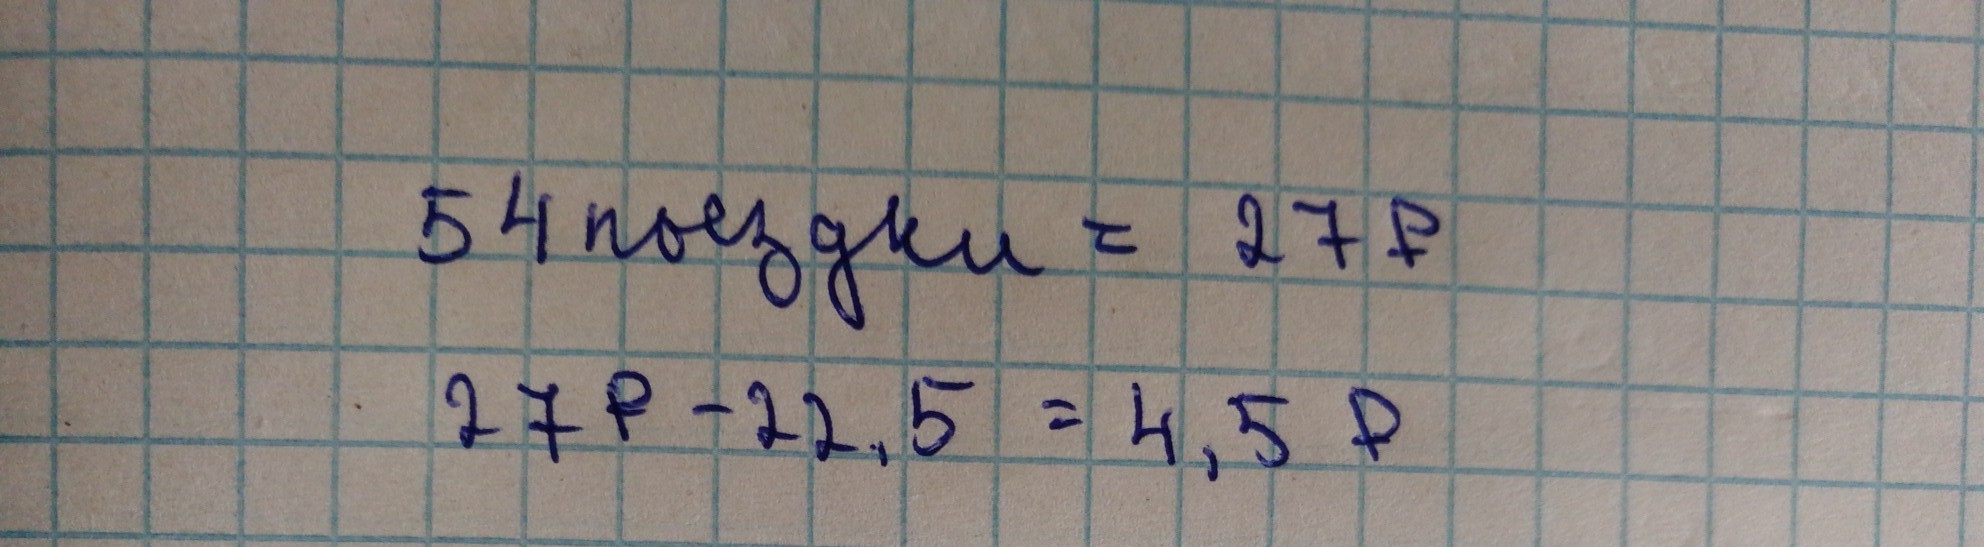 54 поездки = 27 ₽
27 ₽ - 22,5 = 4,5 ₽